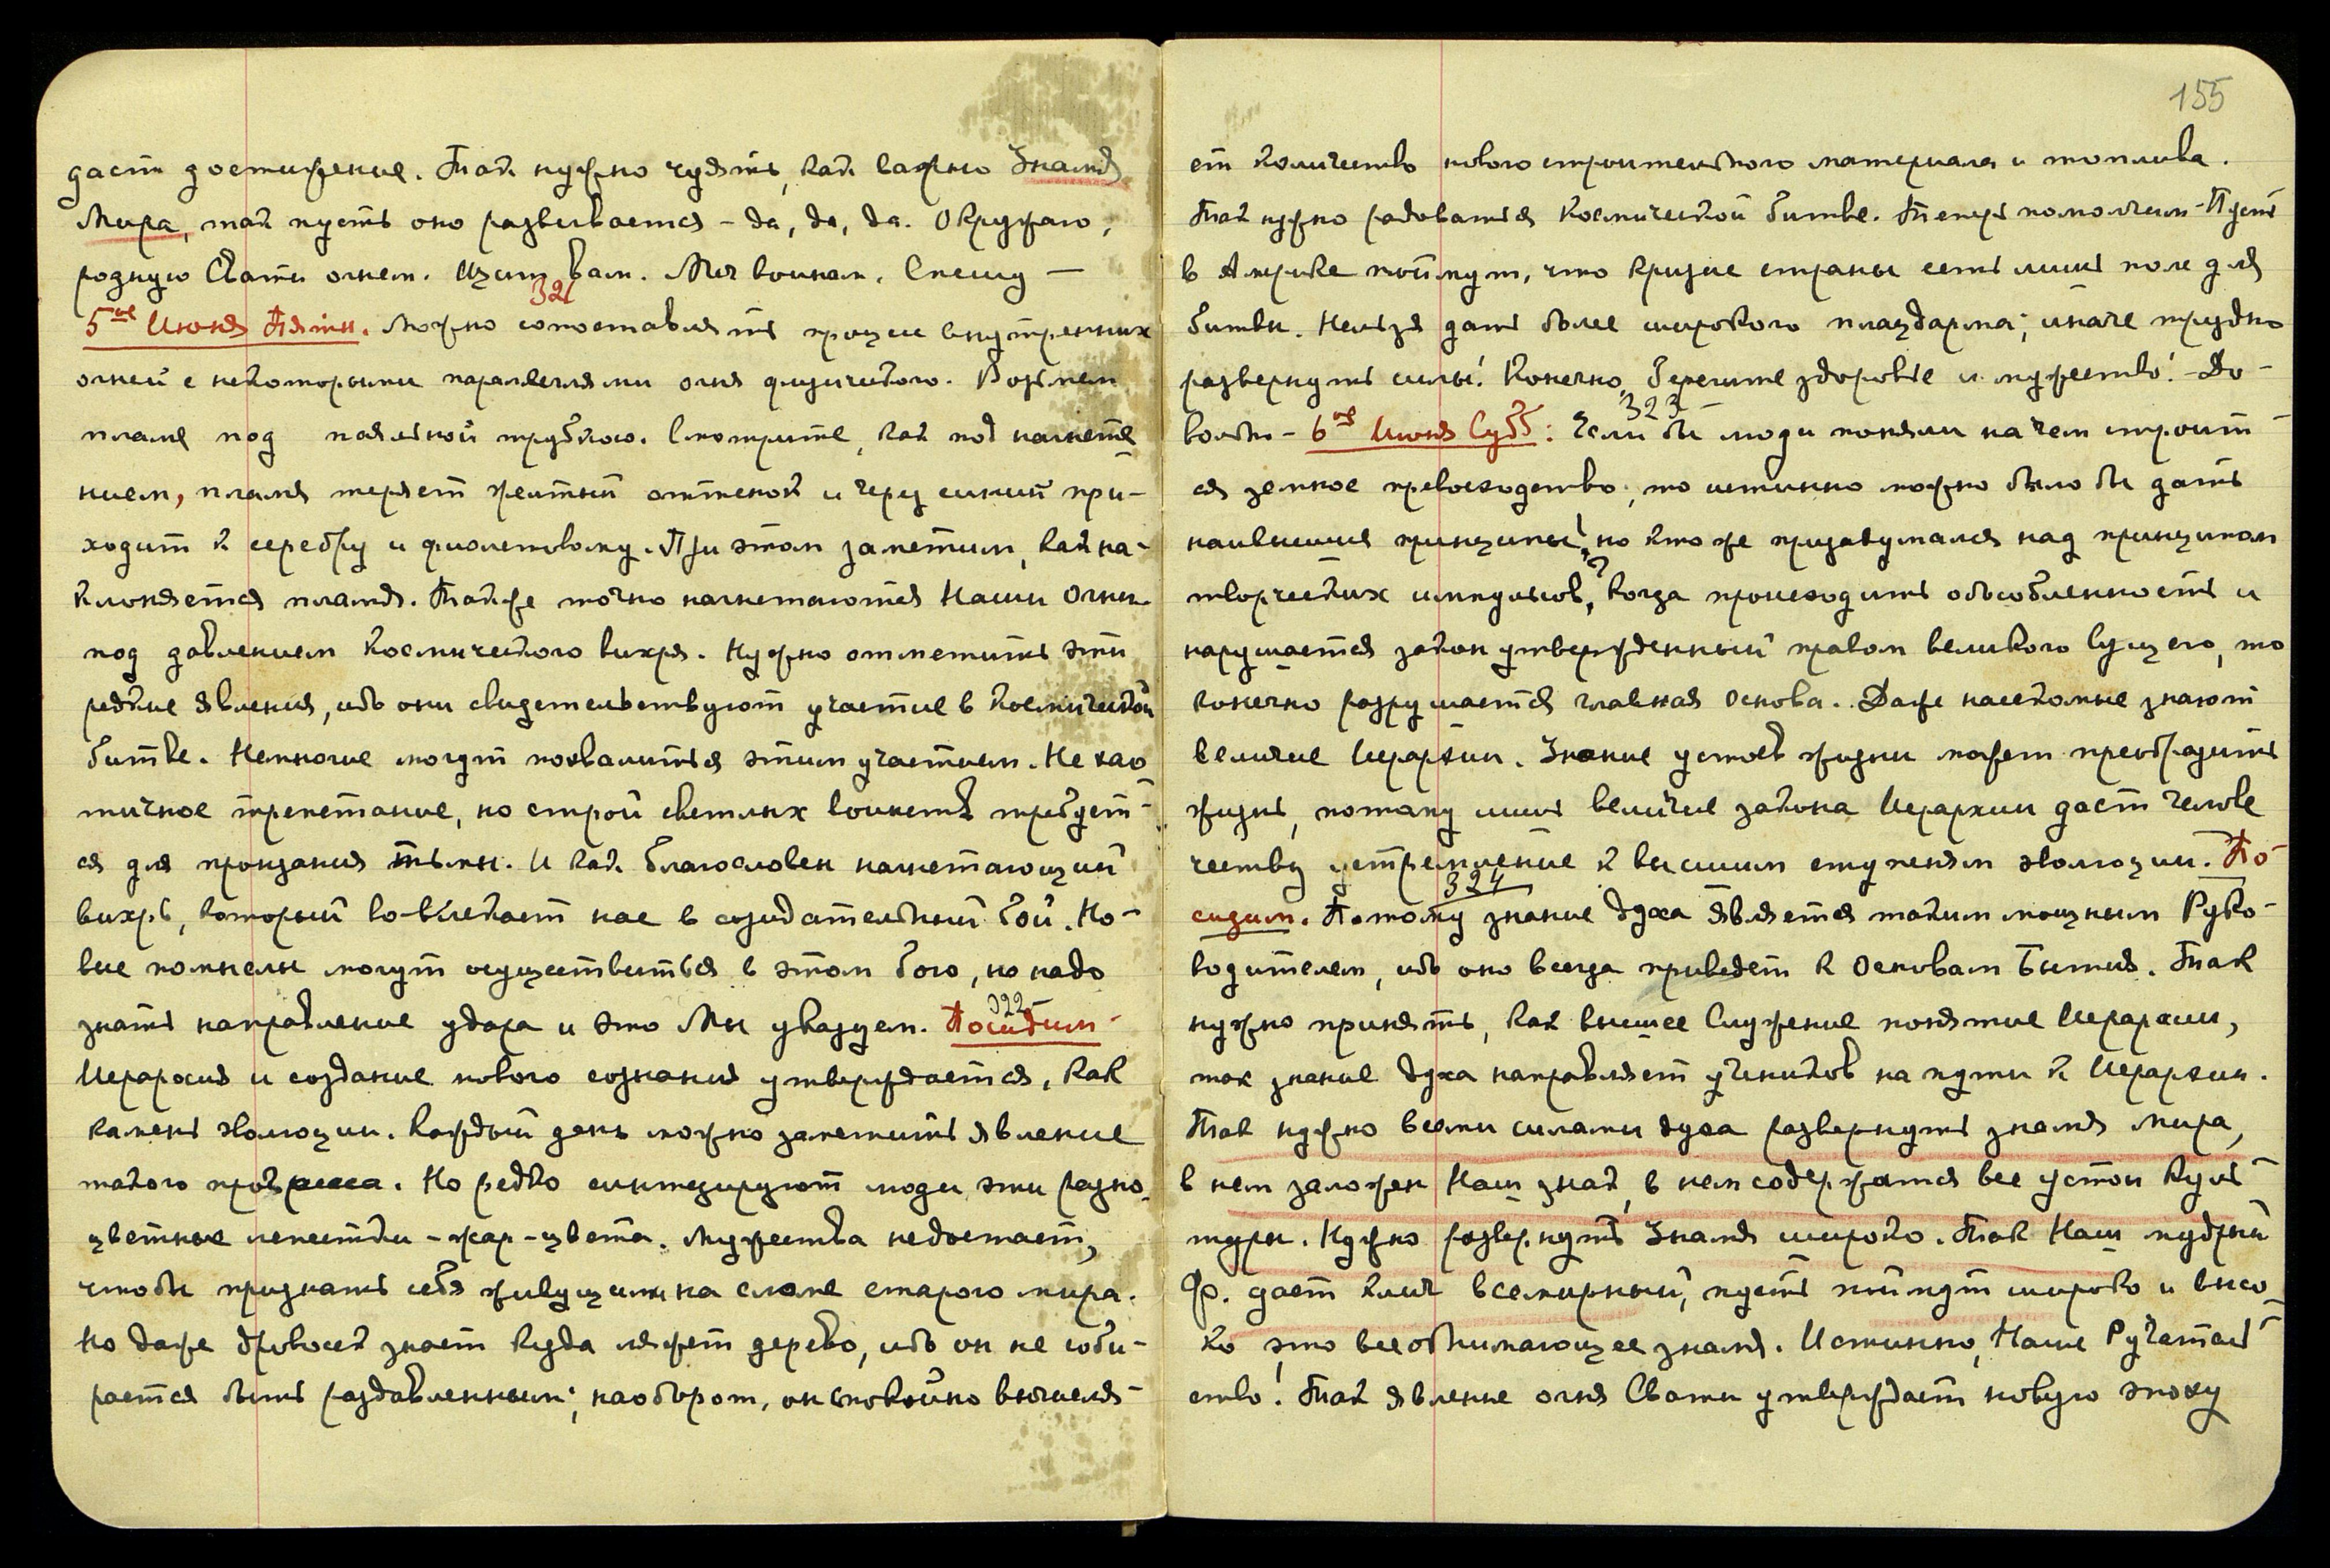 155
даст достижение. Так нужно чуять, как важно Знамя
Мира, так пусть оно развевается – да, да, да. Окружаю,
родную Свати огнем. Щит вам. Меч воинам. Спешу —
321
5ое Июня Пятн. Можно сопоставлять процес внутренних
огней с некоторыми параллелями огня физического. Возьмем
пламя под паяльной трубкою. Смотрите, как под нагнете
нием, пламя теряет желтый оттенок и через синий при-
ходит к серебру и фиолетовому. При этом заметим, как на-
клоняется пламя. Также точно нагнетаются Наши Огни
под давлением Космического вихря. Нужно отметить эти
редкие явления, ибо они свидетельствуют участие в Космической
битве. Немногие могут похвалиться этим участием. Не хао
тичное трепетание, но строй светлых воинств требует-
ся для пронзания тьмы. И как благословен нагнетающий
вихрь, который во-влекает нас в созидательный бой. Но-
вые помыслы могут осуществиться в этом бою, но надо
322
знать направление удара и это Мы указуем. Посидим-
Иерархия и создание нового сознания утверждается, как
камень эволюции. Каждый день можно заметить явление
такого прогресса. Но редко синтезируют люди эти разно-
цветные лепестки – жар-цвета. Мужества недостает,
чтобы признать себя живущими на сломе старого мира.
Но даже дровосек знает куда ляжет дерево, ибо он не соби-
рается быть раздавленным; наоборот, он спокойно вычисля-
ет количество нового строительного материала и топлива.
Так нужно радоваться Космической битве. Теперь помолчим – Пусть
в Америке поймут, что кризис страны есть лишь поле для
битвы. Нельзя дать более широкого плацдарма; иначе трудно
развернуть силы! Конечно, берегите здоровье и мужество! – До-
323
вольно – 6ое Июня Субб: Если бы люди поняли на чем строит-
ся земное превосходство, то истинно можно было бы дать
наивысшие принципы, но кто же призадумался над принципом
творческих импульсов? Когда происходить обособленность и
нарушается закон утвержденный правом великого Сущего, то
конечно разрушается главная основа. Даже насекомые знают
величие Иерархии. Знание устоев жизни может преобразить
жизнь, потому лишь величие закона Иерархии даст челове
честву устремление к высшим ступеням эволюции. По-
324
сидим. Потому знание духа является таким мощным Руко-
водителем, ибо оно всегда приведет к Основам Бытия. Так
нужно принять, как высшее Служение понятие Иерархии,
так знание духа направляет учеников на пути к Иерархии.
Так нужно всеми силами духа развернуть знамя мира,
в нем заложен Наш знак, в нем содержатся все устои Куль-
туры. Нужно развернуть Знамя широко. Так Наш мудрый
Ф. дает клич всемирный, пусть поймут широко и высо-
ко это всеобнимающее знамя. Истинно, Наше Ручатель-
ство! Так явление огня Свати утверждает новую эпоху